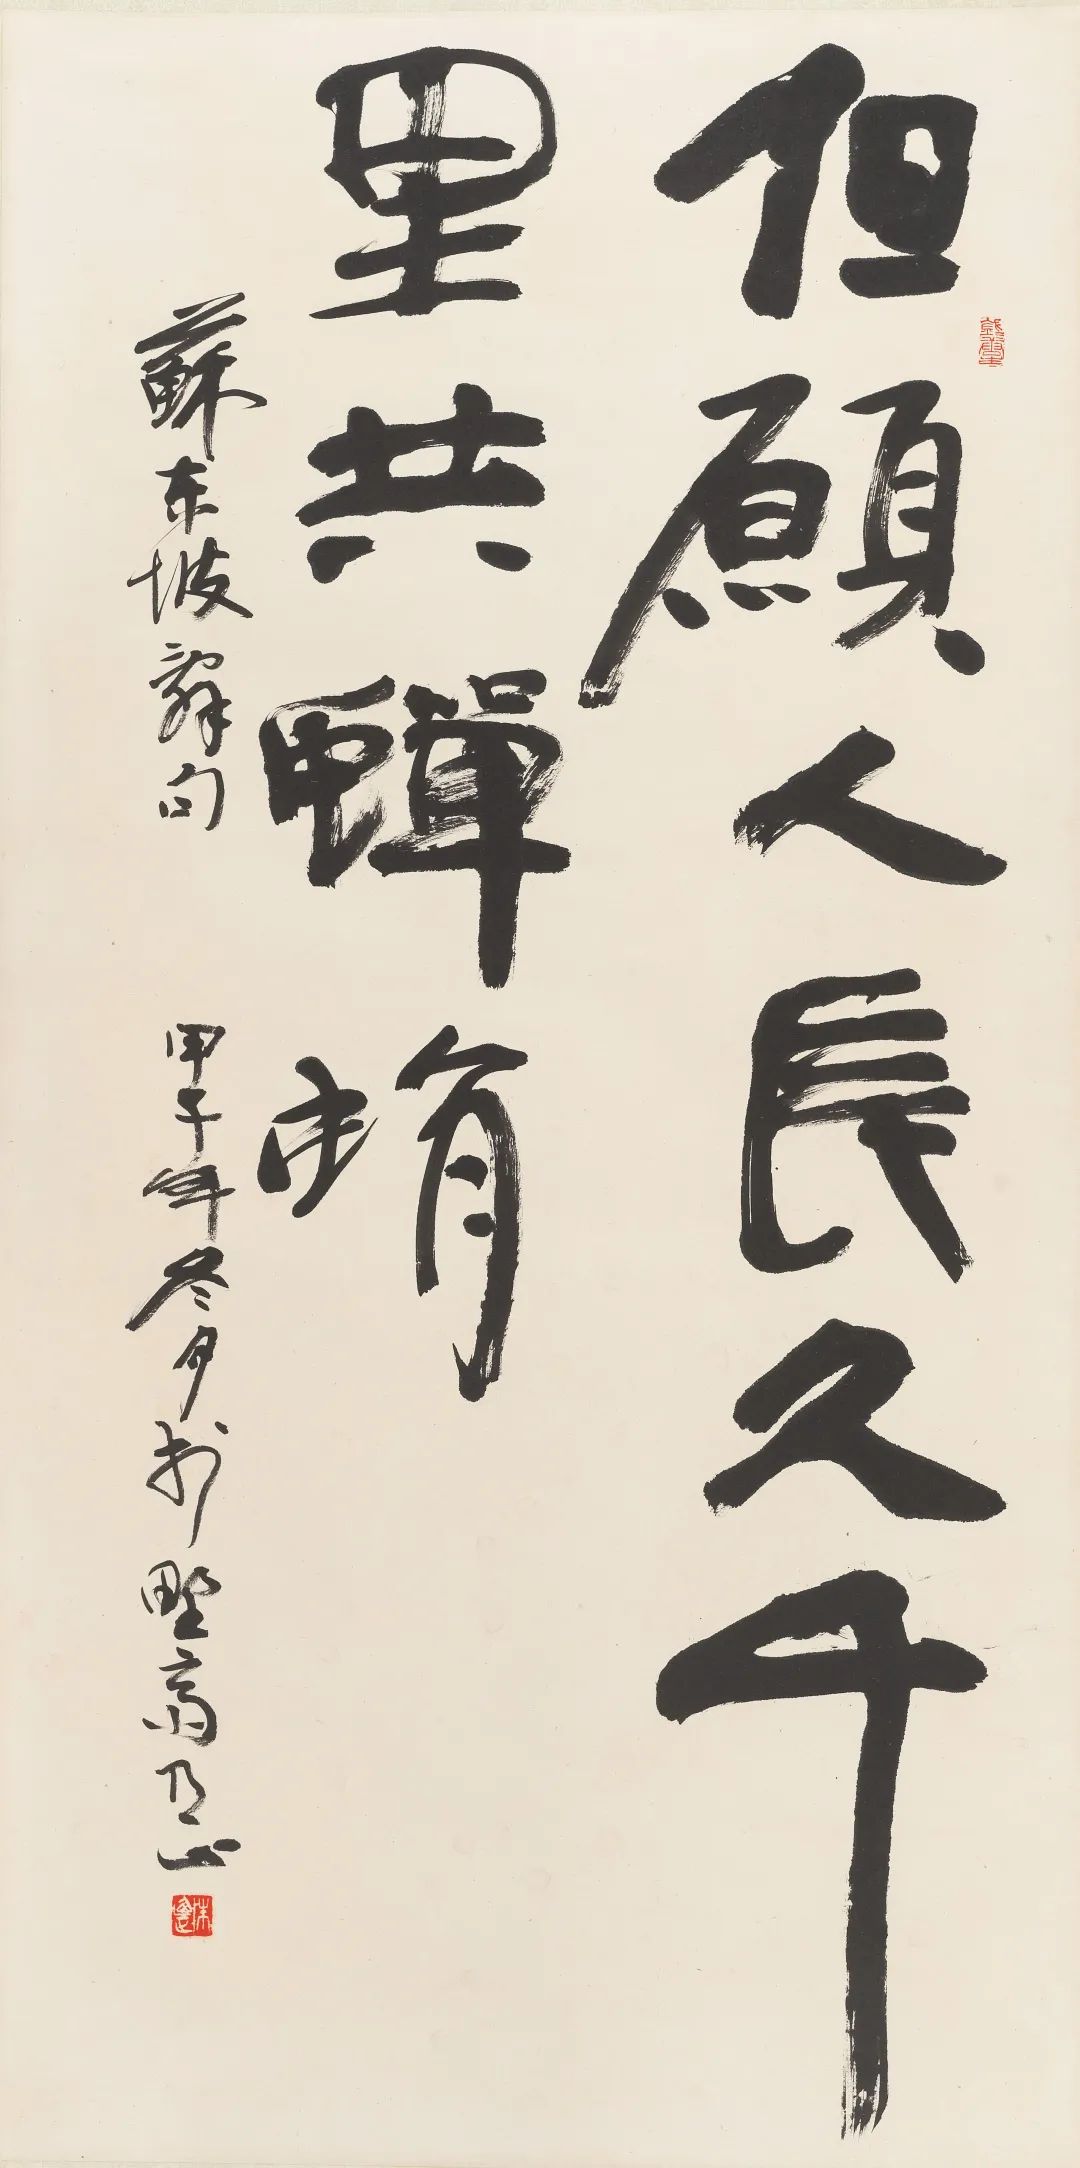 但願人長久千
里共蟬蜎
蘇東坡辭句 甲子年冬月於野齋乃正